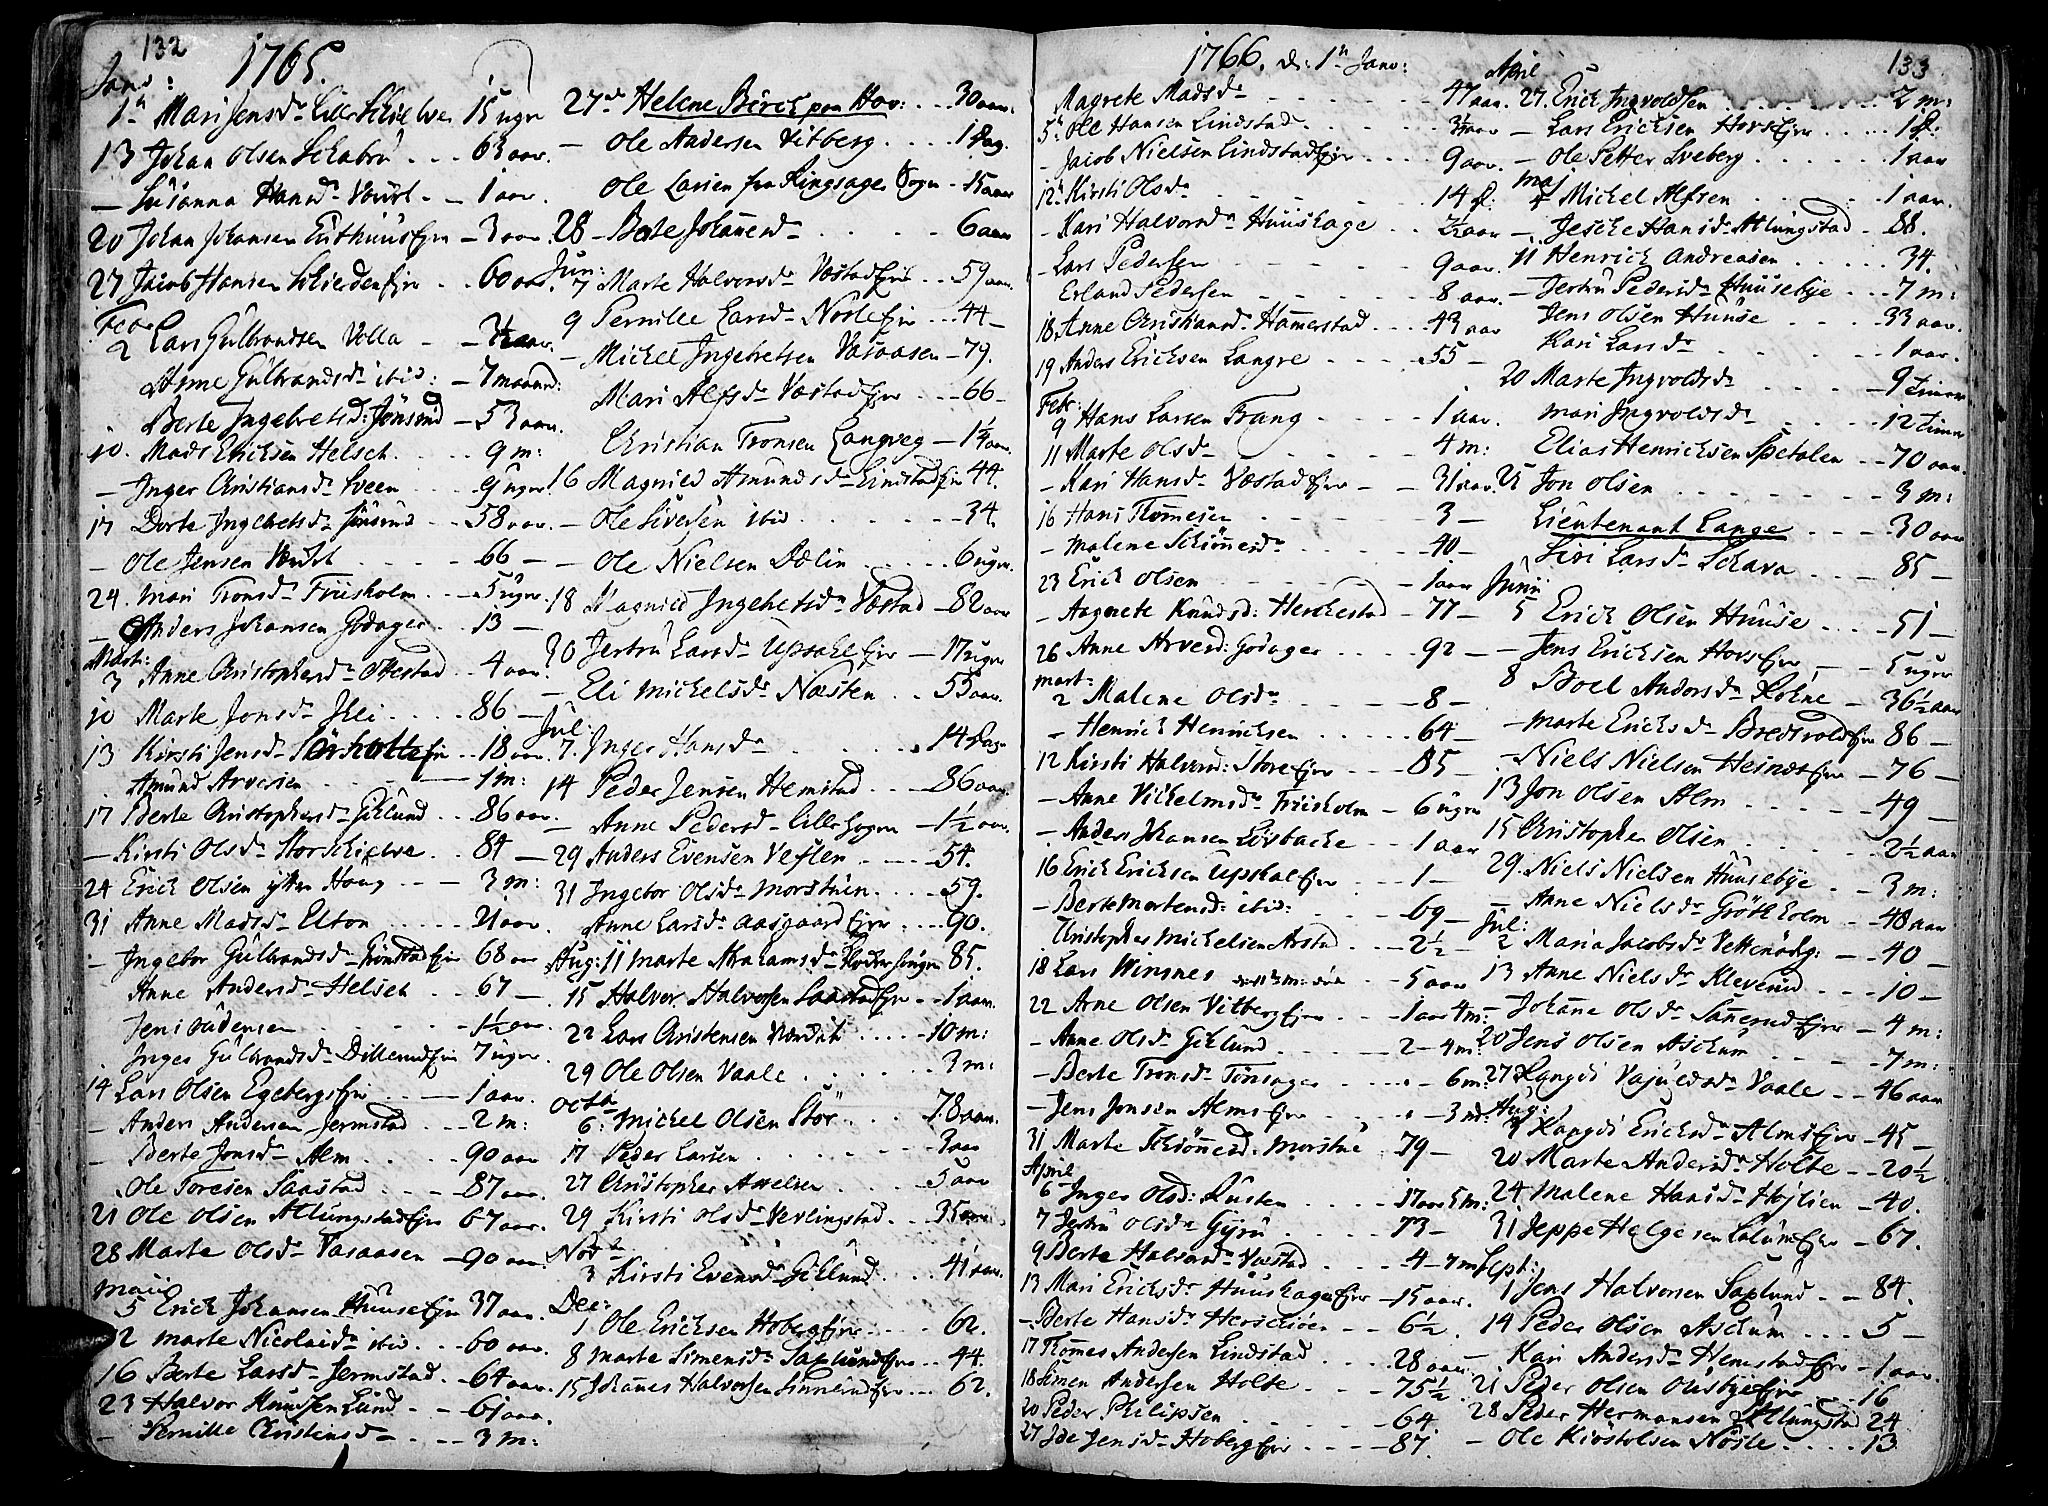 132
1765.
Janv:
1n Mari Jensd. Lille Schielve 15 ugr
13 Johan Olsen Schabru 63 aar.
- Susanna Hansd. 1 aar.
20 Johan Johansen 3 aar.
27 Jacob Hansen 60 aar.
Febr
2 Lars Gulbrandsen Volla
Anne Gulbrandsd. ibid: - 7 maaned:
Berte Ingebretsd: Jönsrud - 53 aar.
10. Mads Ericksen Helseth 9 m:
- Inger Christiansd. Sveen 9 ugr
17 Dorte Ingebretsd. Jönsrud 58 aar.
- Ole Jensen 66 -
24. Mari Tronsd. Friisholm 5 ugr
- Anders Johansen Godager 13 -
Mart:
3 Anne Christophersd. Ottestad 4 aar.
10 Marte Jonsd. 86 -
13 Kirsti Jensd. Sörholte Ejer 18 aar.
Amund Arvesen 1 m:
17 Berte Christophersd. Giklund 86 aar.
- Kirsti Olsd. Storschielve 84 -
24 Erick Olsen ytter Houg 3 m:
31 Anne Madsd. Elton 21 aar.
- Ingebor Gulbrandsd. 68 aar
Anne Andersd. Helseth 67 -
Jens Audensen 1½ aar.
Inger Gulbrandsd. Dillerud Ejer 7 ugr.
14 Lars Olsen Egebergs Ejer 1 aar.
- Anders Andersen Jermstad 2 m:
- Berte Jonsd. Alm 90 aar
Ole Toresen Saastad 87 aar.
21 Ole Olsen Atlungstad Ejer 67 aar.
28 Marte Olsd. Vasaasen 90 aar
Maii
5 Erick Johansen Huuse Ejer 37 aar.
12 Marte Nicolaid. ibid 60 aar.
16 Berte Larsd. Jermstad 64 aar.
23 Halvor Knudsen Lund 61 aar.
- Pernille Christensd. 3 m:
27de Helene Birch paa Hov: 30 aar.
- Ole Andersen Vitberg 1 Dag.
Ole Larsen fra Ringsager Sogn 15 aar
28 - Berte Johannesd. 6 aar
Jun:
7 Marte Halvorsd. Væstad Ejer 59 aar.
9 Pernille Larsd. Nösle Ejer 44 -
- Michel Ingebretsen Vasaasen - 79.
Mari Alfsd. Væstad Ejer 66 -
Christian Tronsen Langveg
16 Magnild Amundsd. Lindstad Ejer 44.
- Ole Siversen ibid 34.
- Ole Nielsen Dælin 6 ugr.
18 Magnild Ingebretsd. Væstad - 82 aar
30 Jertru Larsd. Upsahl Ejer - 17 ugr
- Eli Michelsd. Næsten 55 aar.
Jul:
7. Inger Hansd. 14 Dag
14 Peder Jensen Hemstad 86 aar.
- Anne Pedersd. - 1½ aar.
29 Anders Evensen Veflen 54.
31 Ingebor Olsd. Morstuen 59.
Anne Larsd. Aasgaard Ejer 90.
Aug: 11 Marte Abrahamsd. 85.
15 Halver Halversen Saastad Ejer - 1 aar.
22 Lars Christensen 10 m:
29 Ole Olsen Vaale 3 m:
Octbr
6. Michel Olsen Stör 78 aar.
17 Peder Larsen 3 aar
27 Christopher Axelsen 5 aar
29 Kirsti Olsd. Verlingstad 35 aar
Novbr
3 Kirsti Evensd. Giklund 41 aar.
Dec:
1 Ole Ericksen Hoberg Ejer 62.
8 Marte Simensd. Saxlund Ejer 44.
15 Johannes Halversen 62.
133
1766. d: 1n Janv:
Magrete Madsd. 47 aar.
5n Ole Hansen Lindstad
- Jacob Nielsen Lindstad Ejer 9 aar
12n Kirsti Olsd. 14 d:
- Kari Halvorsd. Huushage 2½ aar
- Lars Pedersen 9 aar.
Erland Pedersen 8 aar.
18. Anne Christiansd. Hammerstad 43 aar
19 Anders Ericksen Langre 55 -
Febr:
9 Hans Larsen Frang 1 aar.
11 Marte Olsd. 4 m:
- Kari Hansd. Væstad Ejer 31 aar.
16 Hans Tommesen 3 -
- Malene Schiönnesd. 40 -
23 Erick Olsen 1 aar
- Aagnete Knudsd: Herckestad - 77 -
26 Anne Arvesd: Godager 92 -
Mart:
2 Malene Olsd. 8 -
- Henrich Henrichsen 64 -
12 Kirsti Halversd: Store Ejer 85 -
- Anne Vilhelmsd. Friisholm - 6 ugr
- Anders Johansen Lövbache 1 aar
16 Erick Ericksen Upsal Ejer 1 -
- Berte Mortensd: ibid: 69 -
Christopher Michelsen Arstad 2½ -
18 Lars Winsnes 5 aar
22 Arne Olsen Vitberg Ejer 1 aar 4 m:
- Anne Olsd. Giklund 2 - 4 m:
- Berte Tronsd. Tönsager 6 m:
- Jens Jonsen Alms Ejer 3 m:
31 Marte Schiönnesd. Morstue 79 -
April
6 Inger Olsd: Rusten 17 aar 5 m:
7 Jertru Olsd. Gyru 73 -
9 Berte Halvorsd. Væstad 4 - 7 m
13 Mari Ericksd. Huushage Ejer - 15 aar.
- Berte Hansd. 6½.
17 Tommes Andersen Lindstad 28 aar
18 Simen Andersen Holte 75½.
20 Peder Philipsen 64.
27 Ide Jensd. Hoberg Ejer 87.
April
27. Erick Ingvoldsen 2 m:
- Lars Ericksen Hovs Ejer 1 d:
- Ole Petter Sveberg 1 aar
Maj
4 Michel Alfsen 1 aar.
- Jesche Hansd. Atlungstad - 88.
11 Henrich Andreasen 34.
- Jertru Pedersd. Huusebye 7 m:
Jens Olsen Huuse 33 aar.
Kari Larsd. 1 aar.
20 Marte Ingvoldsd. 9 Timer
Mari Ingvoldsd. 12 Timer
Elias Henrichsen Spetalen 70 aar.
25 Jon Olsen 3 m:
Lieutenant Lange 30 aar
Siri Larsd. Schava 85 -
Junii
5 Erick Olsen Huuse 51 -
- Jens Ericksen Hovs Ejer 5 ugr
8 Boel Andersd. Rohne - 36½ aar
- Marte Ericksd. Bredvold Ejer 86 -
- Niels Nielsen Heinds Ejer 76 -
13 Jon Olsen Alm 49 -
15 Christopher Olsen 2½ aar
29. Niels Nielsen Huusebye 3 m:
- Anne Nielsd. Grötholm 48 aar
Jul:
2 Maria Jacobsd. 40 -
13 Anne Nielsd. Kleverud 10 -
- Johanne Olsd. Sannerud Ejer - 4 m:
20 Jens Olsen Aschum 7 m:
27 Rangdi Vajulsd. Vaale 46 aar
Aug:
Rangdi Ericksd. Alms Ejer - 45 -
20 Marte Andersd. Holte - 20½
24 Malene Hansd. Höjlien 40.
31 Jeppe Helgesen Ejer - 67.
Sept:
1 Jens Halvorsen Saxlund 84.
14 Peder Olsen Aschum 5 -
- Kari Andersd. Hemstad Ejer - 1 aar.
21 Peder Olsen Ousbye Ejer 16
28 Peder Hermansen Atlungstad 24
- Ole Kiöstolsen Nösle 13